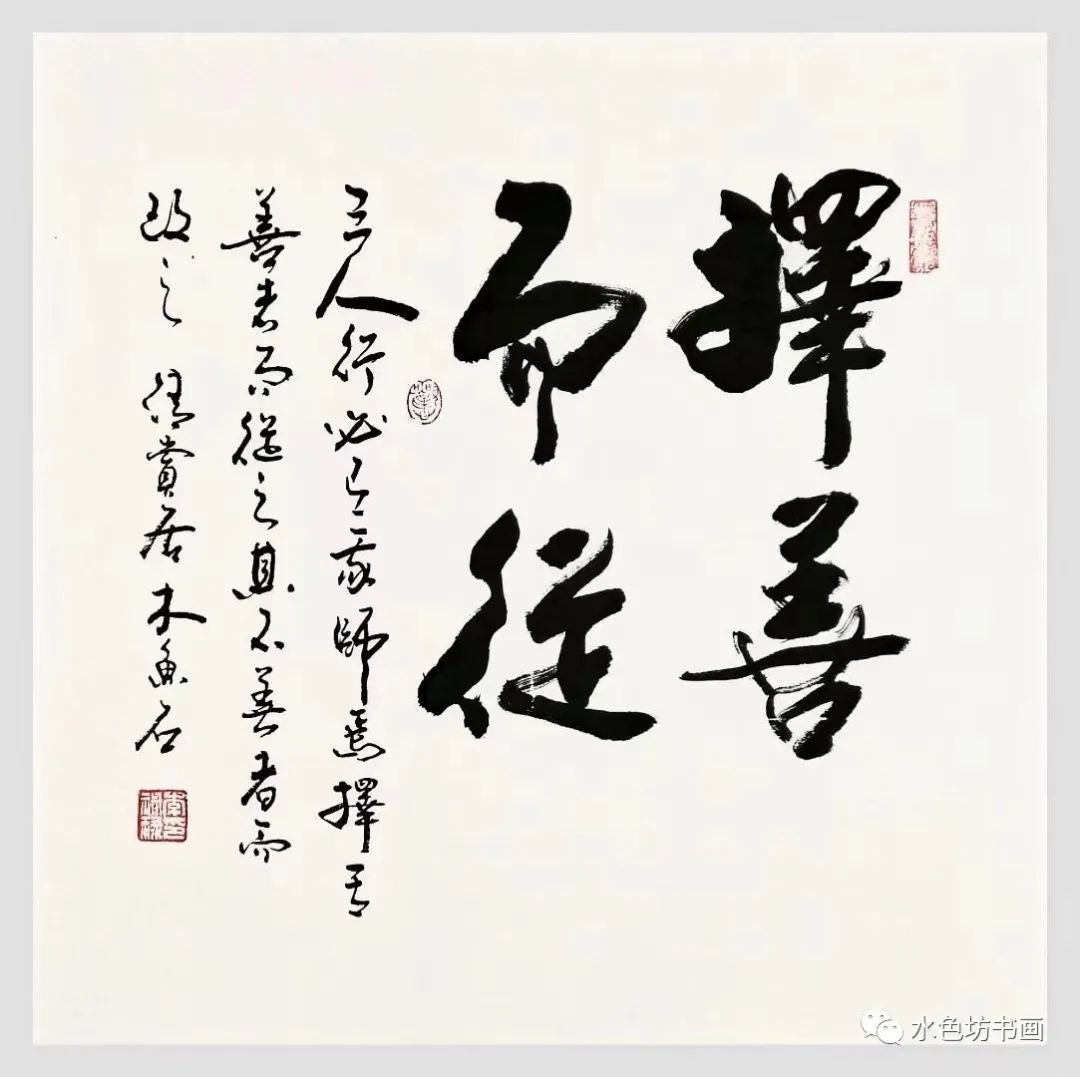 擇善
而從
三人行必有我師焉擇其
善者而從之其不善者而
改之 清賞居木魚石
水色坊书画